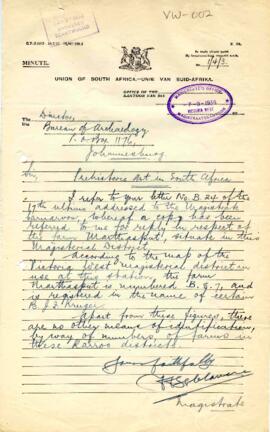 VW-002
MINUTE.
UNION OF SOUTH AFRICA.—UNIE VAN SUID-AFRIKA.
OFFICE OF THE
KANTOOR VAN DIE
MAGISTRATE'S OFFICE
The Director,
Bureau of Archaeology
P.O. Box 1176,
Johannesburg
Sir,
Prehistoric Art in South Africa
I refer to your letter No. B.24 of the
17th ultimo addressed to the Magistrate
Carnarvon, whereof a copy has been
referred to me for reply in respect of
the farm Marthasput, situate in this
Magisterial District.
According to the map of the
Victoria West magisterial district in
use at this station, the farm
Marthasput is numbered B.g.7, and
is registered in the name of certain
B.J. Kruger.
Apart from these figures, there
are no other means of identification,
by way of numbers, of farms in
these Karroo districts.
Yours faithfully
Magistrate